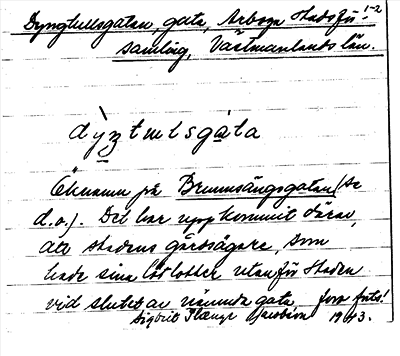 1-2
Dyngtullsgatan, gata, Arboga stadsför-
samling, Västmanlands län.
Öknamn på Brunnsängsgatan (se
d.o.). Det har uppkommit därav,
att stadens gårdsägare, som
hade sina lotter utanför staden
vid slutet av nämnda gata, forts!
Sigbrit Jacobson 1943.